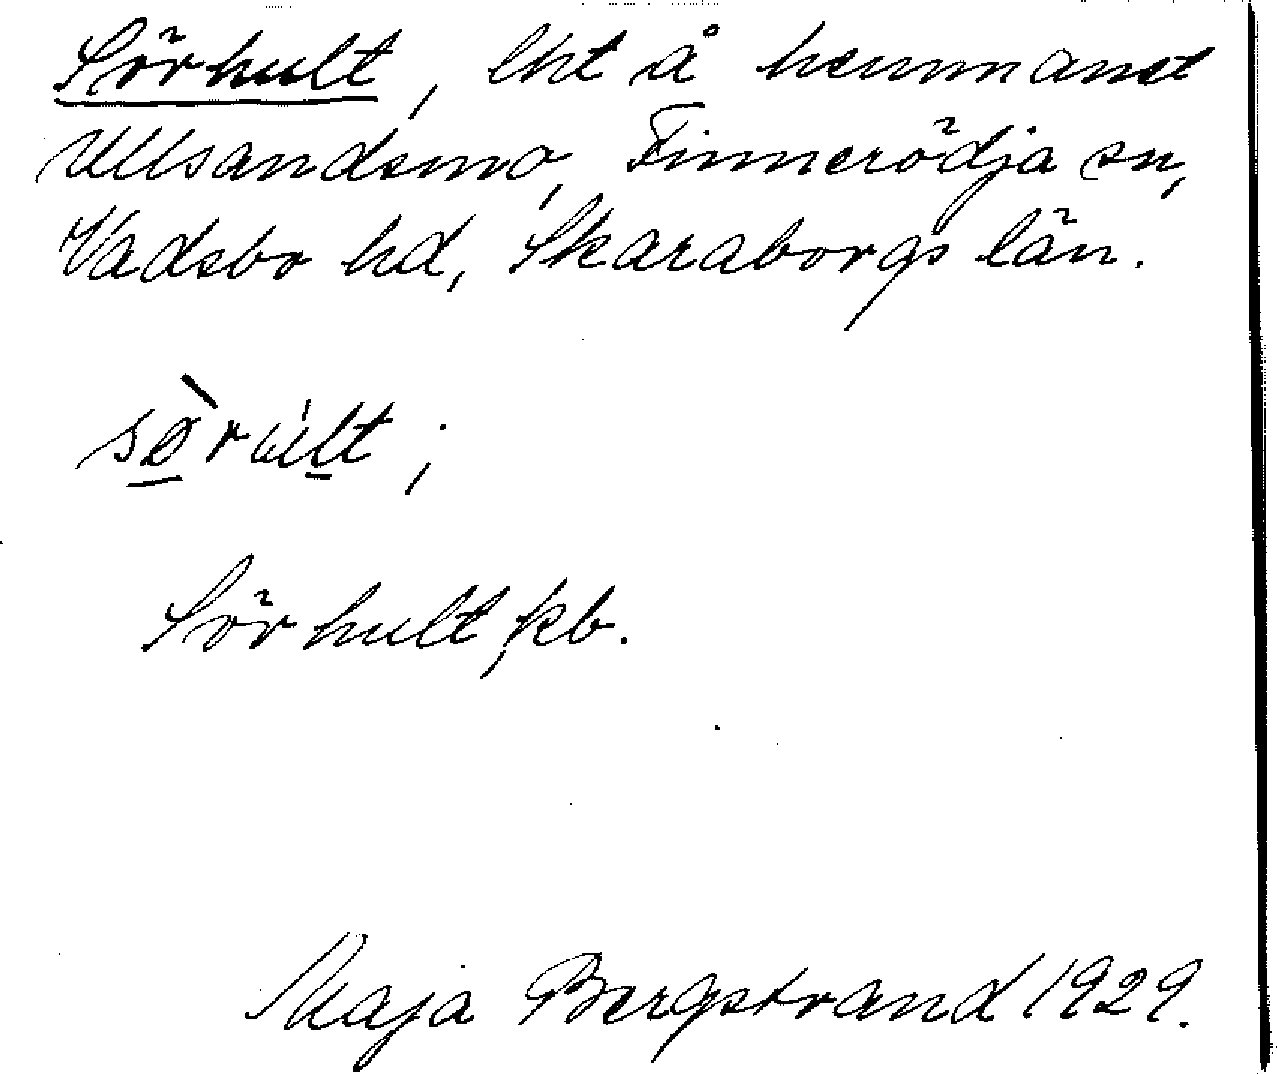 Sörhult, lht å hemmanet
Ullsandsmo, Finnerödja sn,
Vadsbo hd, Skaraborgs län.
sø̱̀ru̍l̲t;
Sörhult, kb.
Maja Bergstrand 1929.